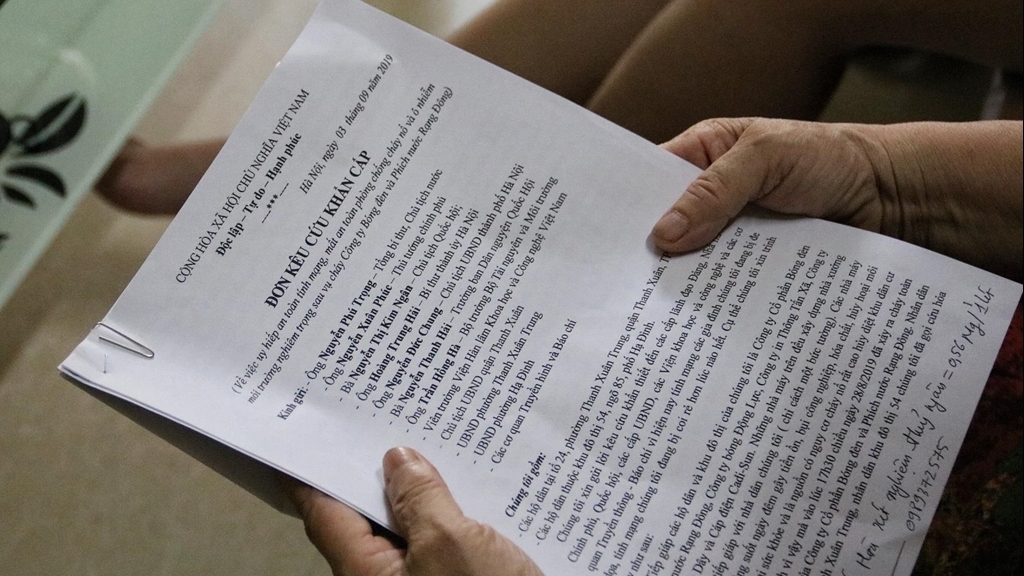 CỘNG HÒA XÃ HỘI CHỦ NGHĨA VIỆT NAM
Độc lập – Tự do – Hạnh phúc
---***---
Hà Nội, ngày 03 tháng 09 năm 2019
ĐƠN KÊU CỨU KHẨN CẤP
(Về việc uy hiếp an toàn tính mạng, mất an toàn phòng chống cháy nổ và ô nhiễm
môi trường nghiêm trọng sau vụ cháy Công ty Bóng đèn và Phích nước Rạng Đông)
Kính gửi: - Ông Nguyễn Phú Trọng – Tổng bí thư, Chủ tịch nước
- Ông Nguyễn Xuân Phúc – Thủ tướng chính phủ
- Bà Nguyễn Thị Kim Ngân – Chủ tịch Quốc hội;
- Ông Hoàng Trung Hải – Bí thư thành ủy Hà Nội
- Ông Nguyễn Đức Chung – Chủ tịch UBND thành phố Hà Nội
- Bà Nguyễn Thanh Hải – Trưởng ban Dân nguyện Quốc Hội
- Ông Trần Hồng Hà – Bộ trưởng Bộ Tài nguyên và Môi trường
- Viện trưởng Viện Hàn lâm Khoa học và Công nghệ Việt Nam
- Chủ tịch UBND quận Thanh Xuân
- UBND phường Thanh Xuân Trung
- UBND phường Hạ Đình
- Các cơ quan Truyền hình và Báo chí
Chúng tôi gồm:
- Các hộ dân tại tổ 24, phường Thanh Xuân Trung, quận Thanh Xuân,
- Các hộ dân thuộc khu đô thị 54, ngõ 85, phố Hạ Đình.
Chúng tôi xin gửi lời kêu cứu khẩn thiết đến các cấp lãnh đạo Đảng,
Chính phủ, Quốc hội, các cấp UBND, các Viện khoa học và công nghệ và các cơ
quan Truyền thông - Báo chí vì hiện nay tính mạng các gia đình chúng tôi đang bị đe
dọa, tính mạng chúng tôi đang bị coi rẻ hơn lúc nào hết. Cụ thể chúng tôi xin trình
như sau:
tiếp giáp các hộ dân và khu đô thị của chúng tôi là Công ty Cổ phần Bóng đèn
nước Rạng Đông, Công ty bóng Động Lực, Công ty in Thông Tấn Xã, Công ty
Dây và Cáp điện Cadi-Sun. Những nhà máy trên đều xây dựng nhà xưởng
tiếp giáp với nhà dân chúng tôi ( chỉ cách một bức tường). Các nhà máy
suốt ngày đêm gây tiếng ồn, bụi công nghiệp, hóa chất, hủy hoại môi
sức khỏe và là nguồn có nguy cơ cháy nổ rất cao hủy diệt khu dân cư
vì vậy mà vào lúc 17h30 chiều ngày 28/8/2019 đã xảy ra cháy toàn
của Công ty Cổ phần Bóng đèn và Phích nước Rạng Đông. Nhân dân
Xuân Trung và nhân dân khu đô thị 54 chúng tôi đã gọi cứu hỏa
Xét nghiệm thủy ngân = 0,56 Mg/1Lf
0989172575